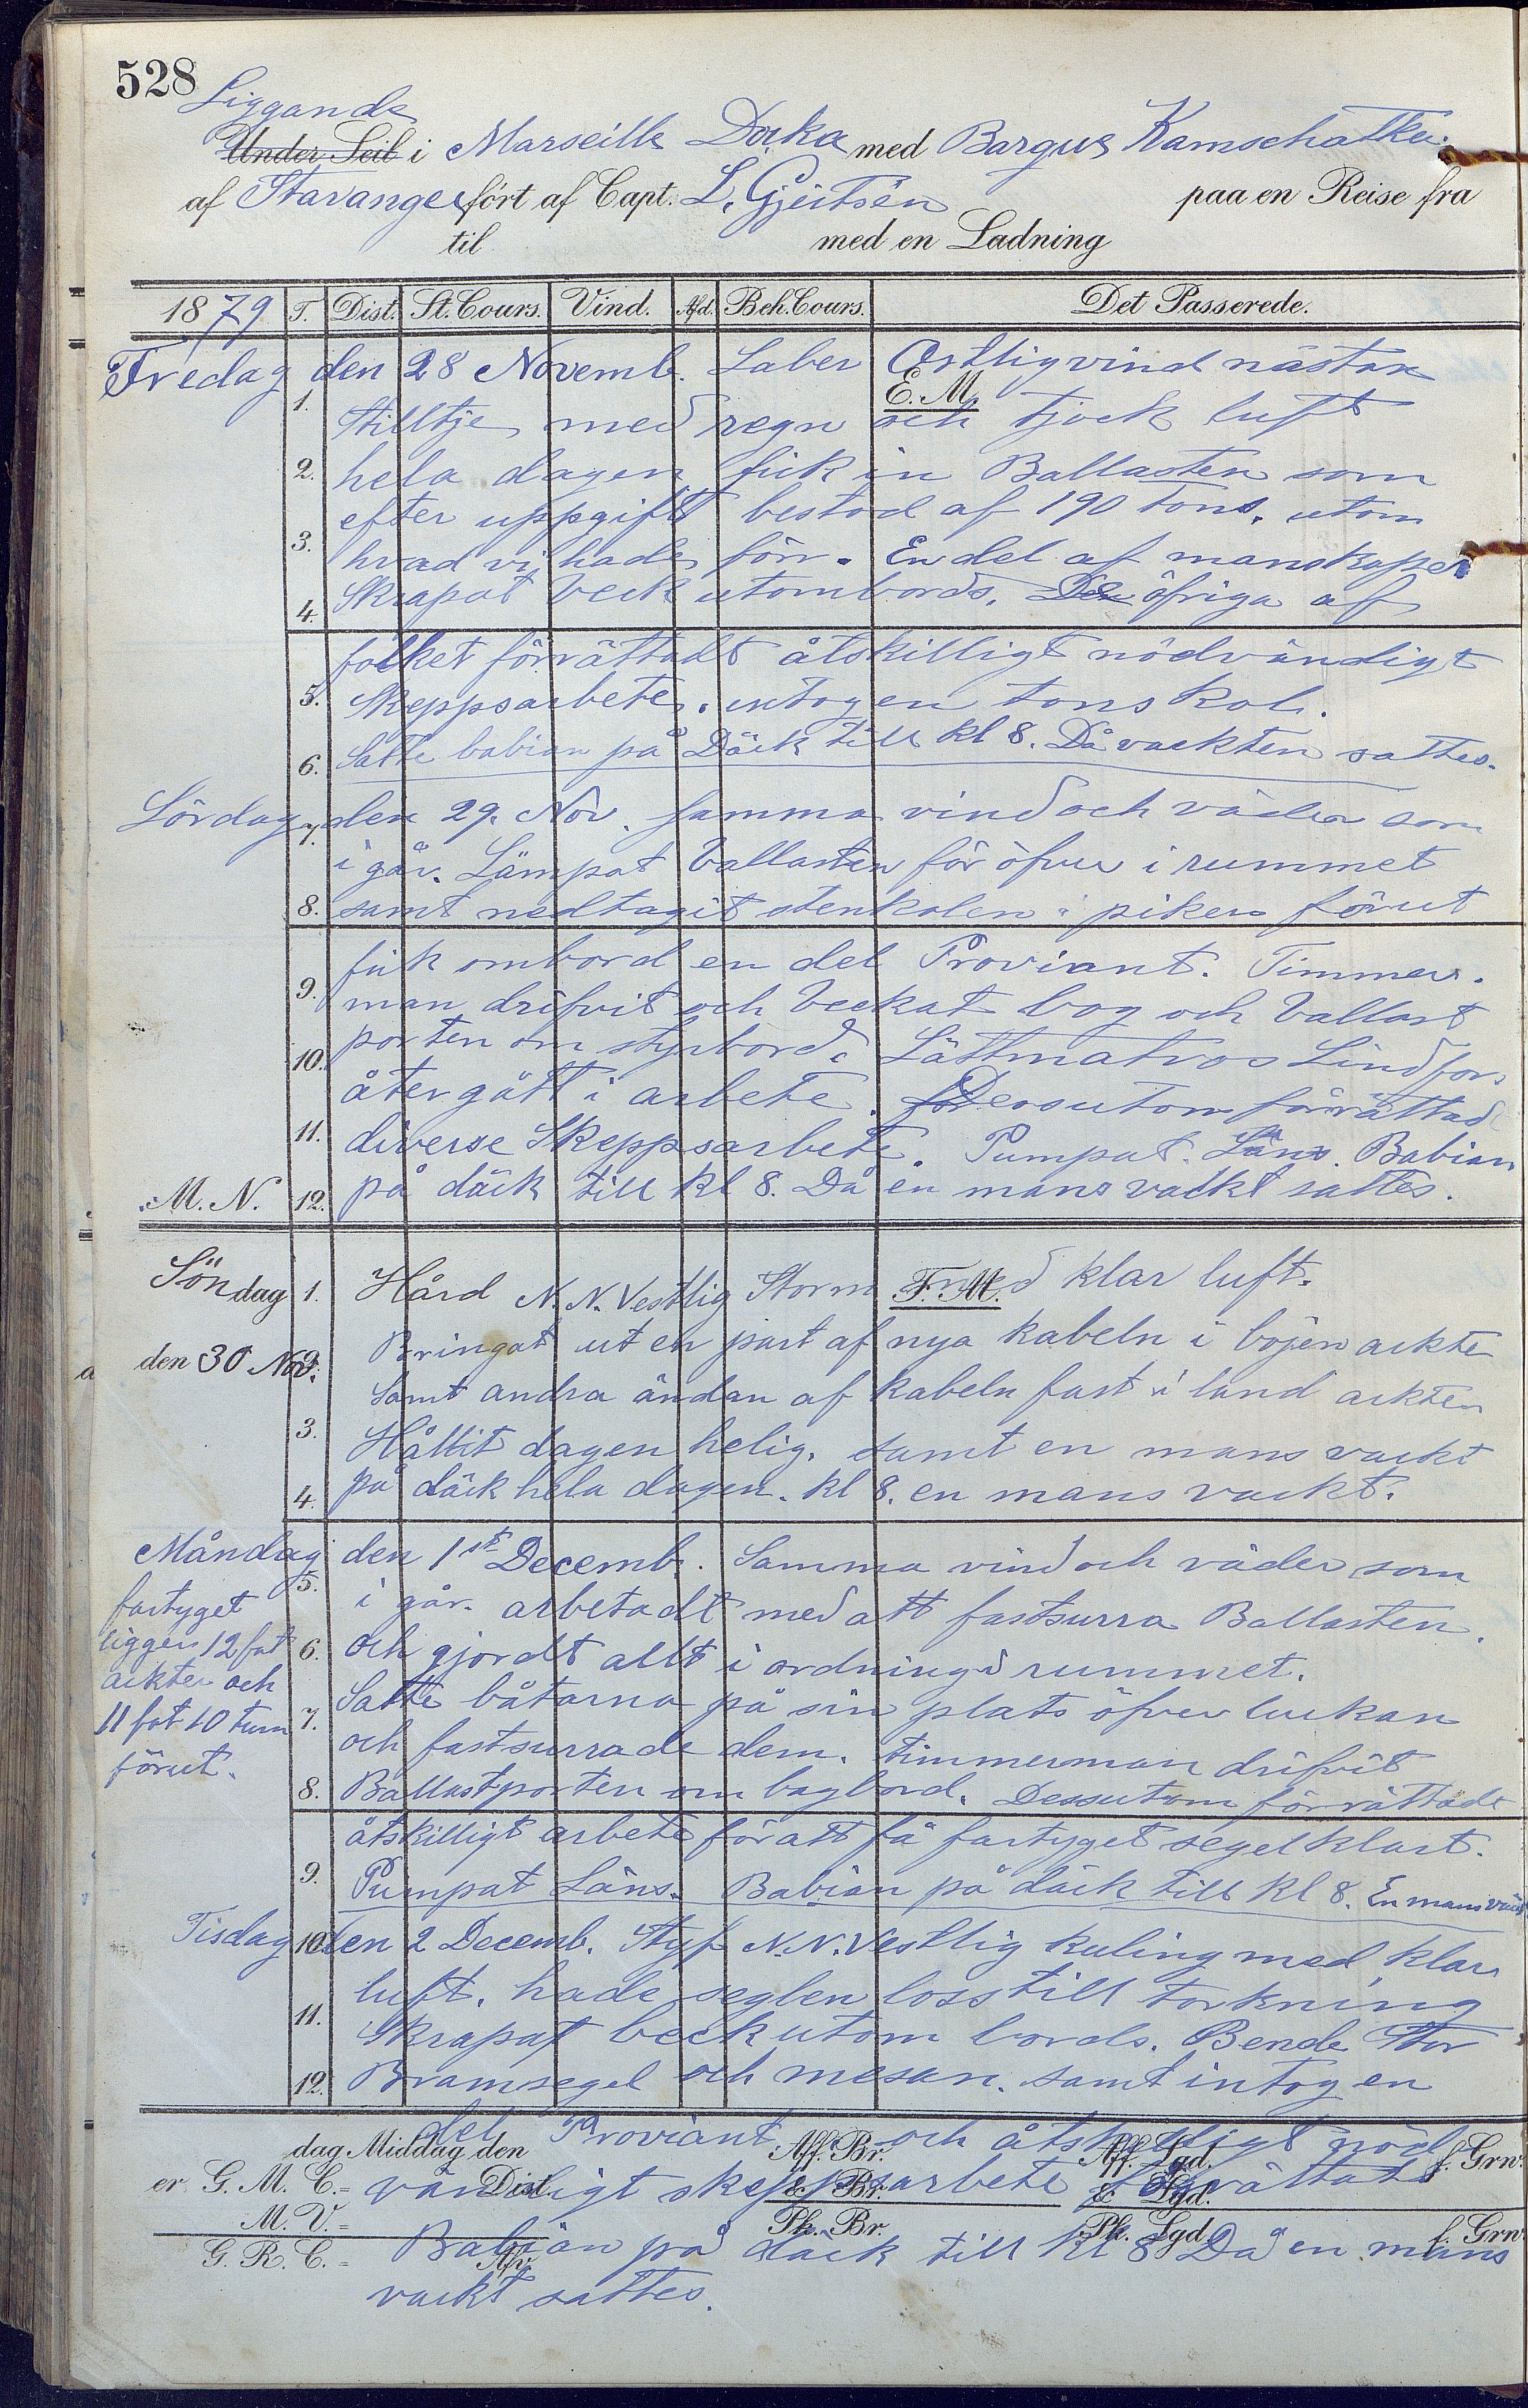 528
Liggande
Under Seil i Marseille Docka med Barque Kamschatka.
af Stavanger fört af Capt. L. Gjertsen paa en Reise fra
til med en Ladning
1879 T. Dist. St. Cours. Vind. Afd. Beh. Cours. Det Passerede.
Fredag den 28 Novemb. Laber Ostlig vind nästan
E. M.
1. Stilltje med regn och tjock luft
2. hela dagen fick in Ballasten som
efter uppgift bestod af 190 tons. utom
3. hvad vi hade förr. En del af manskapet
4. Skrapat beck utombords. De öfriga af
folket förrättadt åtskilligt nödvändigt
5. Skeppsarbete. intog en tons kol.
6. Satte babian på Däck till kl 8. Då vackten sattes.
Lördag den 29. Nov. samma vind och väder som
7.
i går. Lämpat Ballasten för öfver i rummet
8. samt nedtagit stenkolen i piken förut
fick ombord en del Proviant. Timmer-
9. man drifvit och beckat bog och ballast
10. porten om styrbord. Lättmatros Lindfors
återgått i arbete. Dessutom förrättad
11. diverse Skeppsarbete. Pumpat Läns. Babian
M. N. 12. på däck till kl 8. Då en mans vackt sattes.
Söndag 1. Hård N. N. Vestlig Storm med klar luft.
F. M.
den 30 Nov. 2. Bringat ut en part af nya kabeln i bojen ackter
samt andra ändan af kabeln fast i land ackter
3. Hållit dagen helig. samt en mans vackt
4. på däck hela dagen. kl 8. en mans vackt.
Måndag den 1st Decemb. Samma vind och väder som
5. i går. arbetadt med att fastsurra Ballasten.
fartyget
ligger 12 fot
ackter och
11 fot 10 tum
förut.
6. och gjordt allt i ordning i rummet.
7. Satte båtarna på sin plats öfver luckan
och fastsurrade dem. timmerman drifvit
8. Ballastporten om bagbord. Dessutom förrättade
åtskilligt arbete för att få fartyget segelklart.
9. Pumpat Läns. Babian på däck till kl 8. En mans vackt
Tisdag 10. den 2 Decemb. Styf N. N. Vestlig kuling med klar
luft. hade seglen loss till torkning
11. Skrapat beck utom bords. Bende Stor
12. Bramsegel och mesan. samt intog en
del Proviant. och åtskilligt nöd
dag Middag den Aff. Br. Aff. Lgd. f. Grw.
er G. M. C. = Dist. & Br. & Lgd.
vändigt skeppsarbete förrättadt
M. V. = Pk. Br. Pk. Lgd. f. Grw.
G. R. C. = Afv.
Babian på däck till kl 8 Då en mans
vackt sattes.